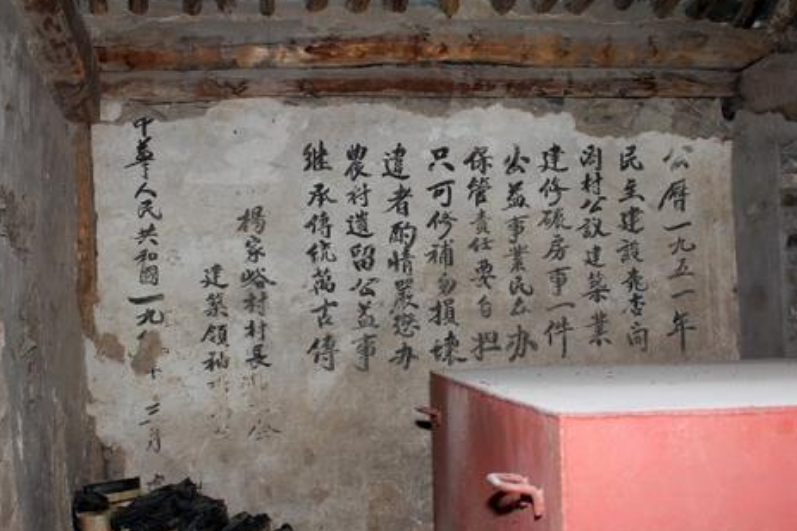 公曆一九五一年
民主建設
村公設建築業
建修碾房事一件
公益事業民公办
保管責任要自担
只可修補勿損壞
違者酌情嚴懲办
農村遺留公益事
继承傳統萬古傳
楊家峪村村長
建築領袖
中華人民共和國一九 三月